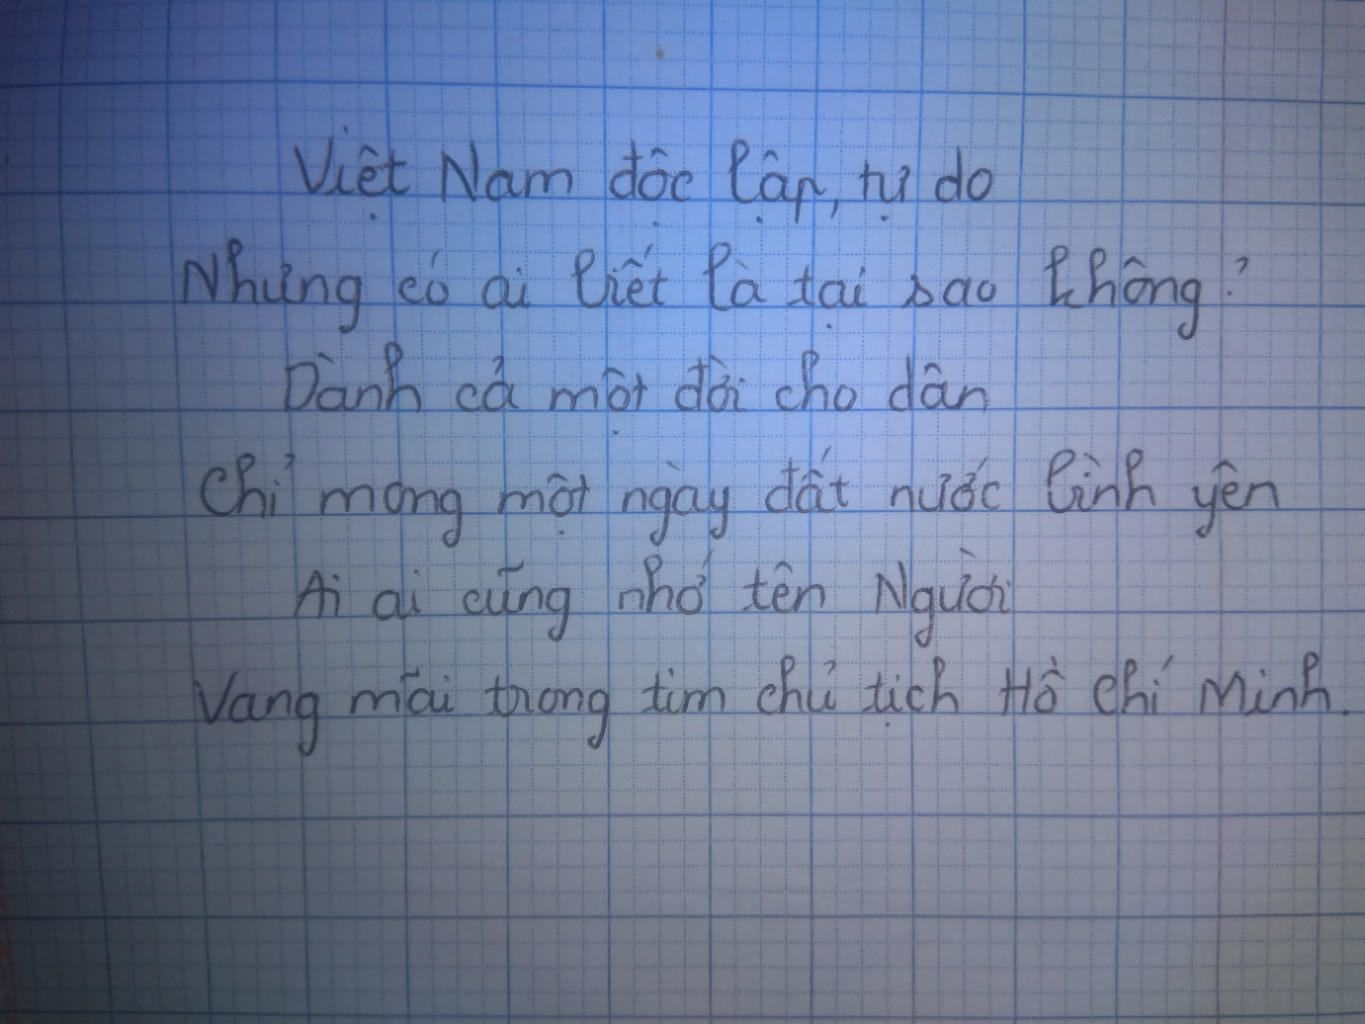 Việt Nam độc lập, tự do
Nhưng có ai biết là tại sao không?
Dành cả một đời cho dân
Chỉ mong một ngày đất nước bình yên
Ai ai cũng nhớ tên Người
Vang mãi trong tim chủ tịch Hồ Chí Minh.